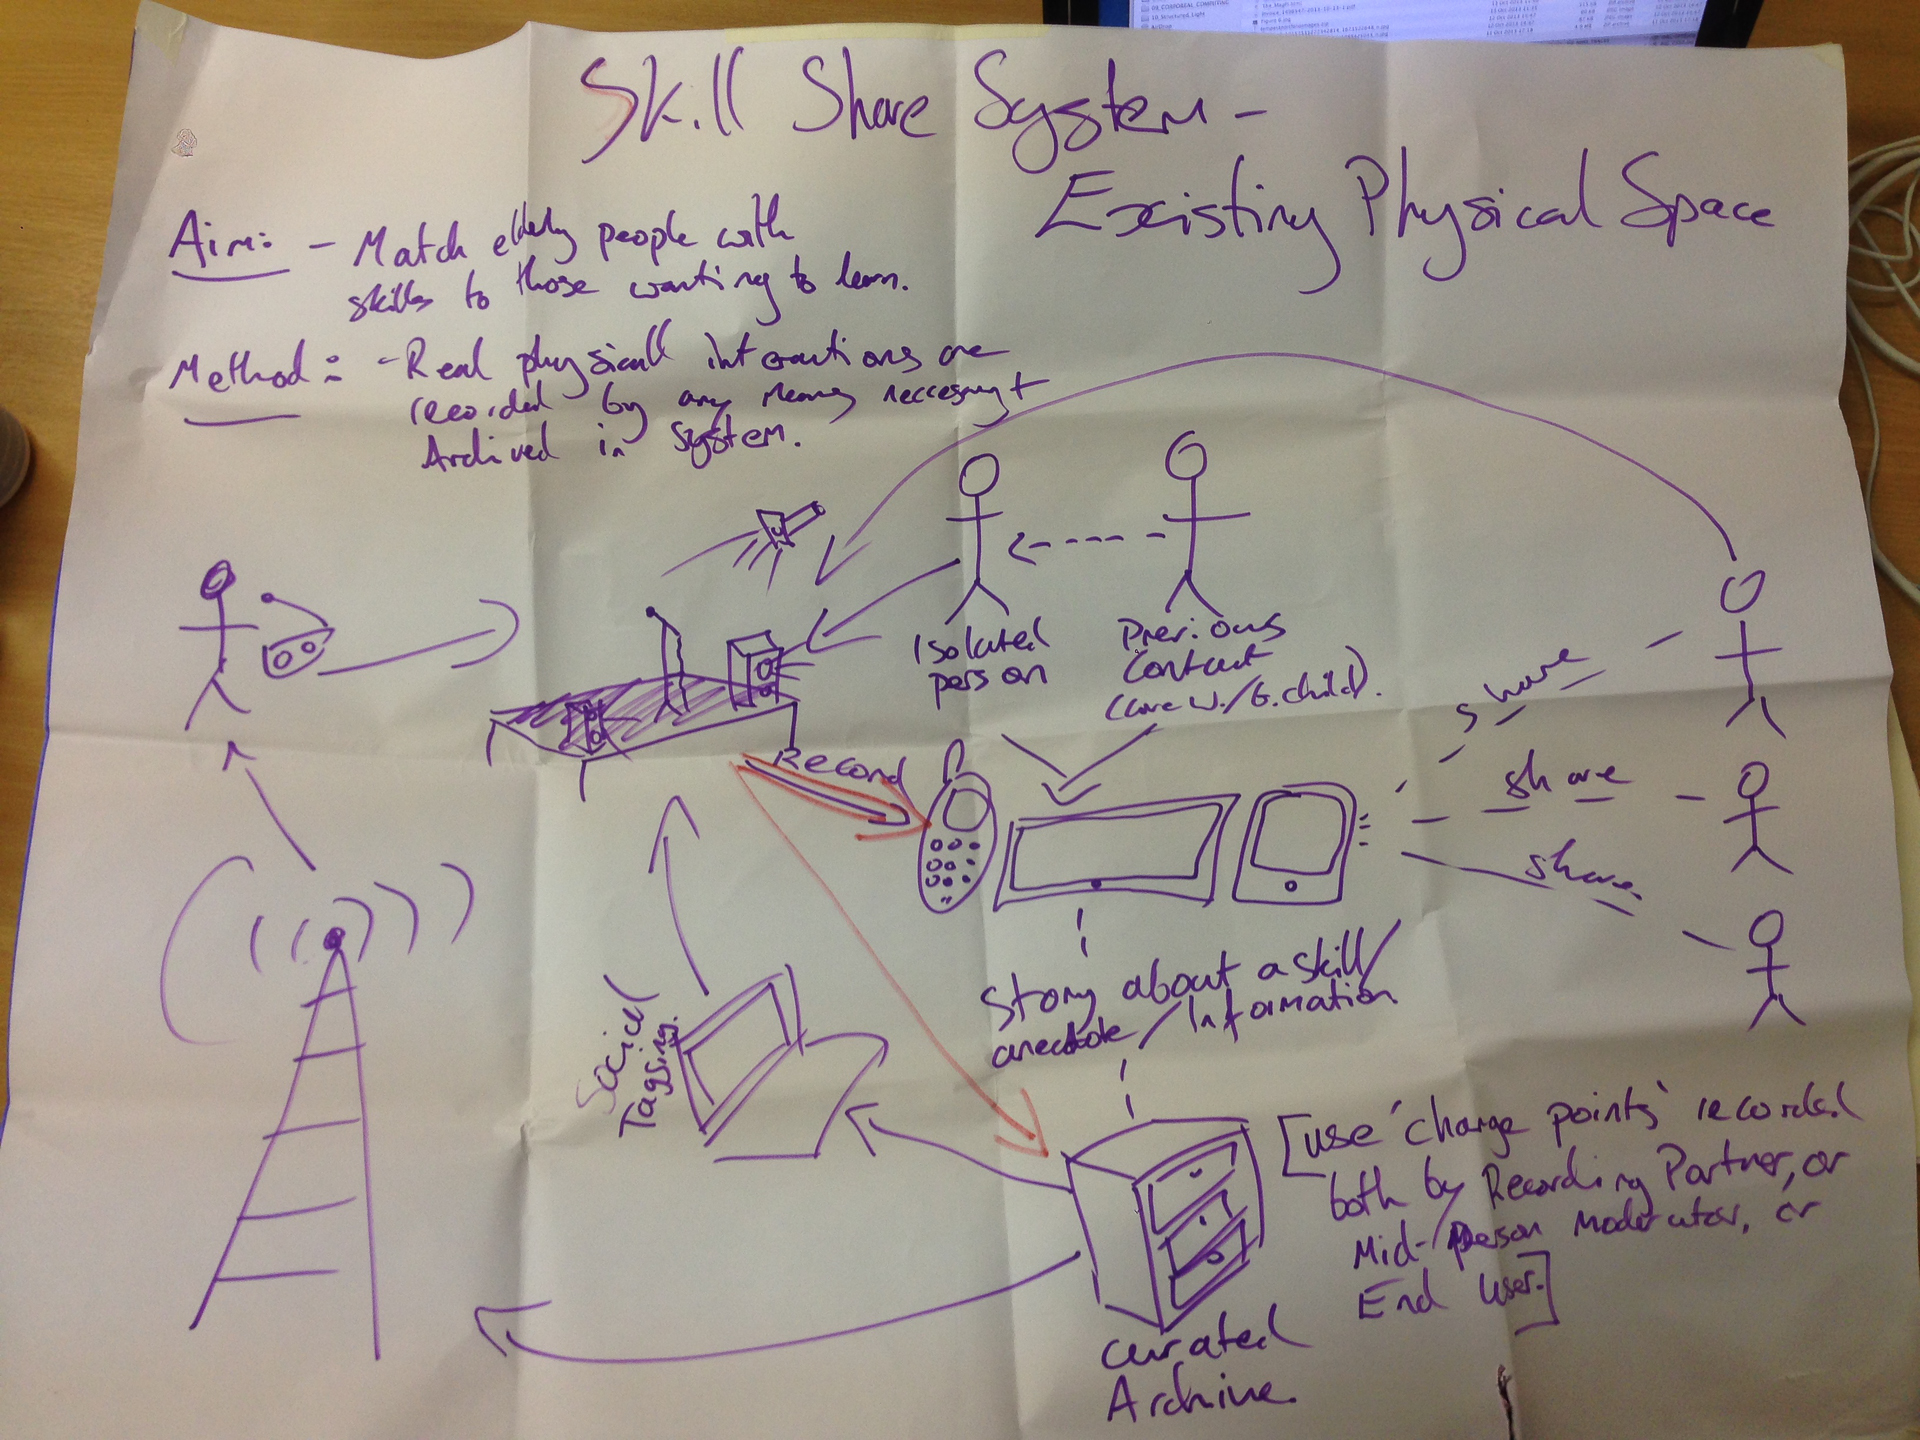 Skill Share System -
Existing Physical Space
Aim: - Match elderly people with
skills to those wanting to learn.
Method: - Real physicall interactions are
recorded by any means neccesary +
Archived in system.
Isolated
person
Previous
Contact
(care w./G.child).
Record
share
share
share
Story about a skill/
anecdote/Information
Social
Tagging.
[use 'change points' recorded
both by Recording Partner, or
Mid-person moderator, or
End user.]
curated
Archive.